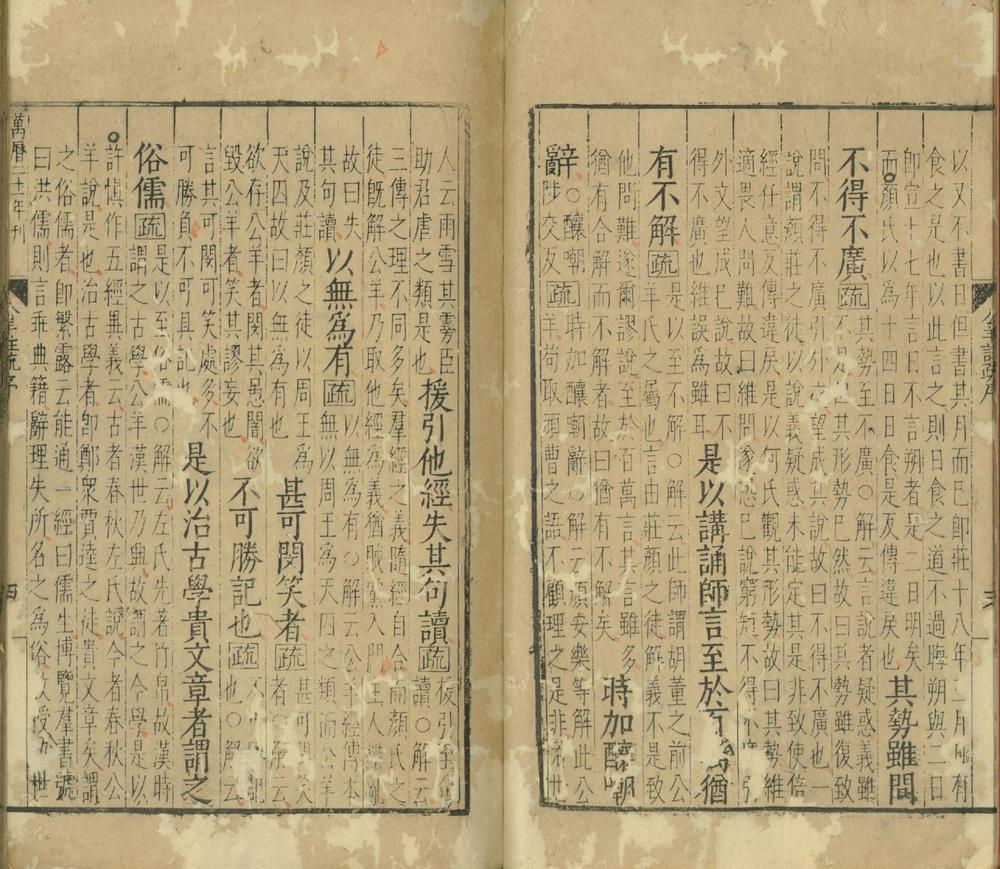 以又不書日但書其月而已即莊十八年三月日有
食之是也以此言之則日食之道不過晦朔與二日
即宣十七年言日不言朔者是二日明矣
而顏氏以為十四日日食是反傳違戾也
其勢雖問
不得不廣疏
其勢至不廣○解云言說者疑惑義雖
不是但其形勢已然故曰其勢雖復致
問不得不廣引外文望成其說故曰不得不廣也一
說謂顏莊之徒以說義疑惑未能定其是非致使倍
經任意反傳違戾是以何氏觀其形勢故曰其勢維
適畏人問難故曰維問遂恐已說窮短不得不廣引
外文望成已說故曰不
得不廣也維誤為雖耳
是以講誦師言至於百萬猶
有不解疏
是以至不解○解云此師謂胡董之前公
羊氏之屬也言由莊顏之徒解義不是致
他問難遂爾謬說至於百萬言其言雖多
猶有合解而不解者故曰猶有不解矣
時加釀嘲
辭
○釀嘲
陟交反
疏
時加釀嘲辭○解云顏安樂等解此公
羊苟取頑曹之語不顧理之是非若世
人云雨雪其雱臣
助君虐之類是也
援引他經失其句讀疏
援引至句
讀○解云
三傳之理不同多矣羣經之義隨經自合而顏氏之
徒既解公羊乃取他經為義猶賊黨入門主人錯亂
故曰失
其句讀
以無為有疏
以無為有○解云公羊經傳本
無以周王為天囚之類而公羊
說及莊顏之徒以周王為
天囚故曰以無為有也
甚可閔笑者疏
甚可閔笑
者○解云
欲存公羊者閔其愚闇欲
毀公羊者笑其謬妄也
不可勝記也疏
不可勝記
也○解云
言其可閔可笑處多不
可勝負不可具記也
是以治古學貴文章者謂之
俗儒疏
是以至俗儒○解云左氏先著竹帛故漢時
謂之古學公羊漢世乃興故謂之今學是以
許慎作五經異義云古者春秋左氏說今者春秋公
羊說是也治古學者即鄭衆賈逵之徒貴文章矣謂
之俗儒者即繁露云能通一經曰儒生博覽羣書號
曰洪儒則言乖典籍辭理失所名之為俗教授於世
萬曆二十一年刊
四